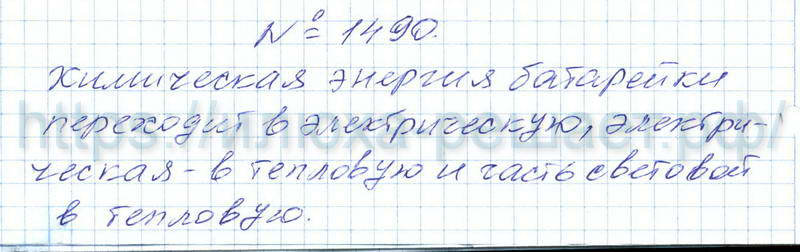 № 1490.
Химическая энергия батарейки
переходит в электрическую, электри-
ческая - в тепловую и часть световой
в тепловую.